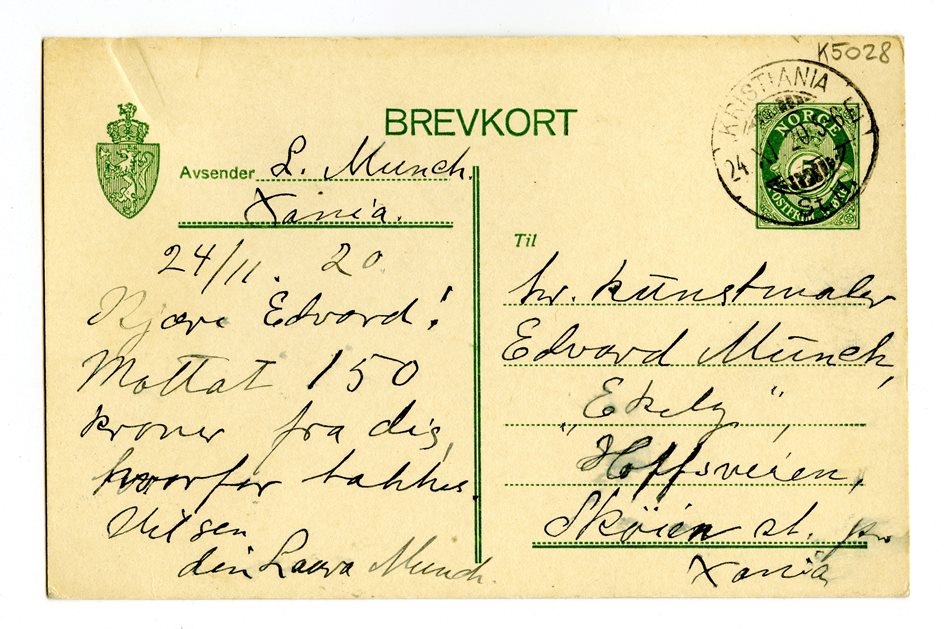 K5028
BREVKORT
KRISTIANIA
24 XI 20. 5-6 E
NORGE
5
Avsender L. Munch.
Xania.
24/11. 20.
Kjære Edvard!
Mottat 150
kroner fra dig,
hvorfor takkes.
Hilsen
din Laura Munch.
Til
hr. kunstmaler
Edvard Munch,
„Ekely",
Hoffsveien,
Skøien st. pr
Xania